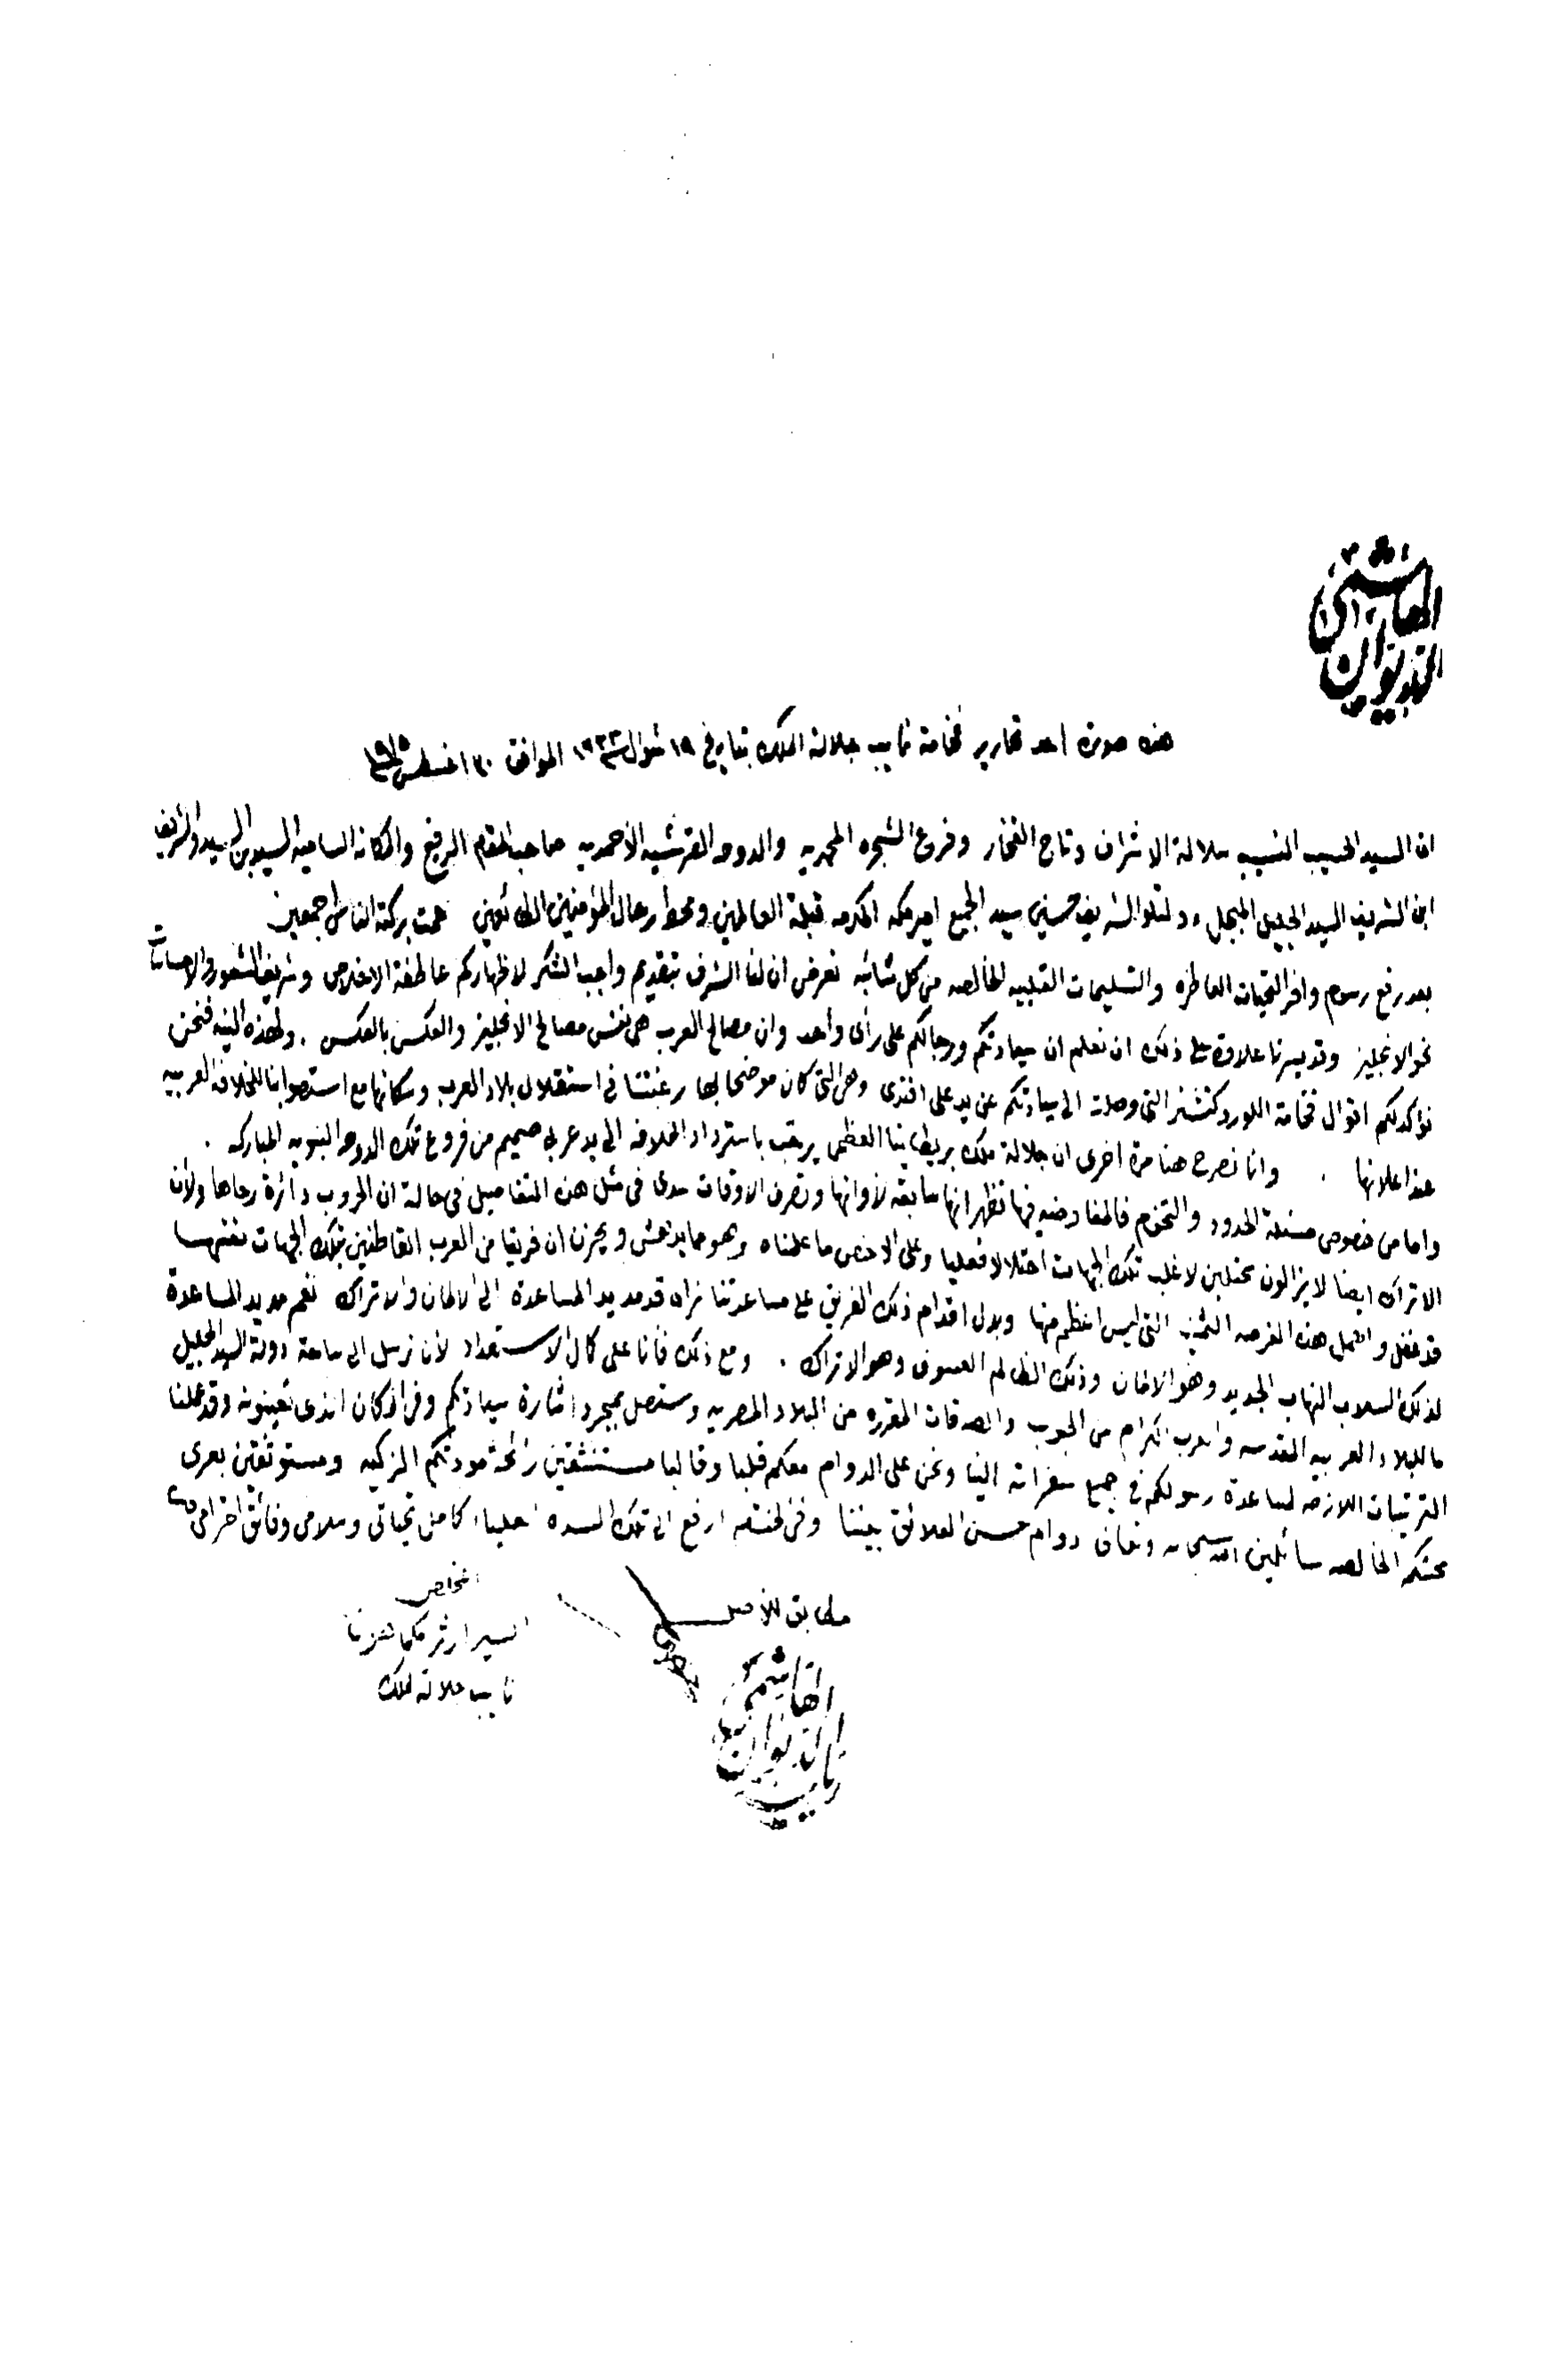 الديوان الهاشمي
هذه صورة احد تحارير فخامة نايب جلالة الملك بتاريخ ١٩ شوال سنة ١٣٣٣ الموافق ٣٠ اغسطس سنة ١٩١٥
الى السيد الحسيب النسيب سلالة الاشراف وتاج الفخار وفرع الشجره المحمديه والدوحه القرشيه الأحمديه صاحب المقام الرفيع والمكانه الساميه السيد بن السيد والشريف
ابن الشريف السيد الجليل المبجل دولتلو الشريف حسين سيد الجميع امير مكه المكرمه قبلة العالمين ومحط رحال المؤمنين الطائعين عمت بركته الناس اجمعين
بعد رفع رسوم وافر التحيات العاطره والتسليمات القلبيه الخالصه من كل شائبه نعرض ان لنا الشرف بتقديم واجب الشكر لاظهاركم عاطفة الاخلاص وشريف الشعور والاحساسات
نحو الانجليز وقد يسرنا علاوة على ذلك ان نعلم ان سيادتكم ورجالكم على رأى واحد وان مصالح العرب هى نفس مصالح الانجليز والعكس بالعكس . ولهذه النيه فنحن
نؤكد لكم اقوال فخامة اللورد كتشنر التى وصلت الى سيادتكم عن يد على افندى وهى التى كان موضحا بها رغبتنا فى استقلال بلاد العرب وسكانها مع استصوابنا للخلافة العربيه
عند اعلانها . وانا نصرح هنا مرة اخرى ان جلالة ملك بريطانيا العظمى يرحب باسترداد الخلافه الى يد عربى صميم من فروع تلك الدوحه النبويه المباركه .
واما من خصوص مسئلة الحدود والتخوم فالمفاوضه فيها تظهر انها سابقه لأوانها وتصرف الاوقات سدى فى مثل هذه التفاصيل فى حالة ان الحروب دائرة رحاها ولأن
الاتراك ايضا لا يزالون محتلين لاغلب تلك الجهات احتلالا فعليا وعلى الاخص ما علمناه وهو مما يدهش ويحزن ان فريقا من العرب القاطنين بتلك الجهات نفسها
قد غفل واهمل هذه الفرصه الثمينه التى ليس اعظم منها وبدل اقدام ذلك الفريق على مساعدتنا نراه قد مد يد المساعدة الى الالمان والاتراك نعم مد يد المساعدة
لذلك السلاب النهاب الجديد وهو الالمان وذلك الظالم العسوف وهو الاتراك . ومع ذلك فأنا على كمال الاستعداد لأن نرسل الى ساحة دولة السيد الجليل
ما للبلاد العربيه المقدسه والعرب الكرام من الحبوب والصدقات المقرره من البلاد المصريه وستصل بمجرد اشارة سيادتكم وفى المكان الذى تعينونه وقد عملنا
الترتيبات اللازمه لمساعدة رسولكم فى جميع سفراته الينا ونحن على الدوام معكم قلبا وقالبا مستنشقين رائحة مودتكم الزكيه ومستوثقين بعرى
محبتكم الخالصه سائلين الله سبحانه وتعالى دوام حسن العلائق بيننا وفى الختام ارفع الى تلك السده العلياء كامل تحياتى وسلامى وفائق احترامى
المخلص
السير ارثر مكماهون
نايب جلالة الملك
مطابق للأصل
نايب الديوان الهاشمي